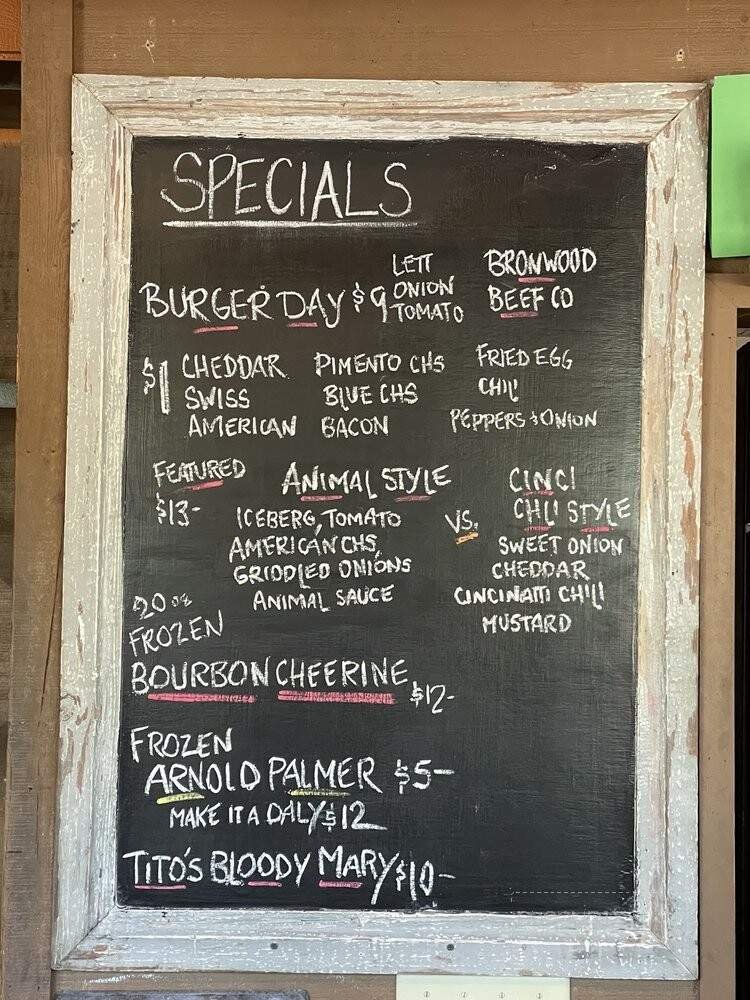 SPECIALS
BURGER DAY $9
LETT
ONION
TOMATO
BRONWOOD
BEEF CO
$1
CHEDDAR
SWISS
AMERICAN
PIMENTO CHS
BLUE CHS
BACON
FRIED EGG
CHILI
PEPPERS & ONION
FEATURED
$13-
ANIMAL STYLE
ICEBERG, TOMATO
AMERICAN CHS,
GRIDDLED ONIONS
ANIMAL SAUCE
VS.
CINCI
CHILI STYLE
SWEET ONION
CHEDDAR
CINCINATTI CHILI
MUSTARD
20 oz
FROZEN
BOURBON CHEERINE $12-
FROZEN
ARNOLD PALMER $5-
MAKE IT A DALY $12
TITO'S BLOODY MARY $10-